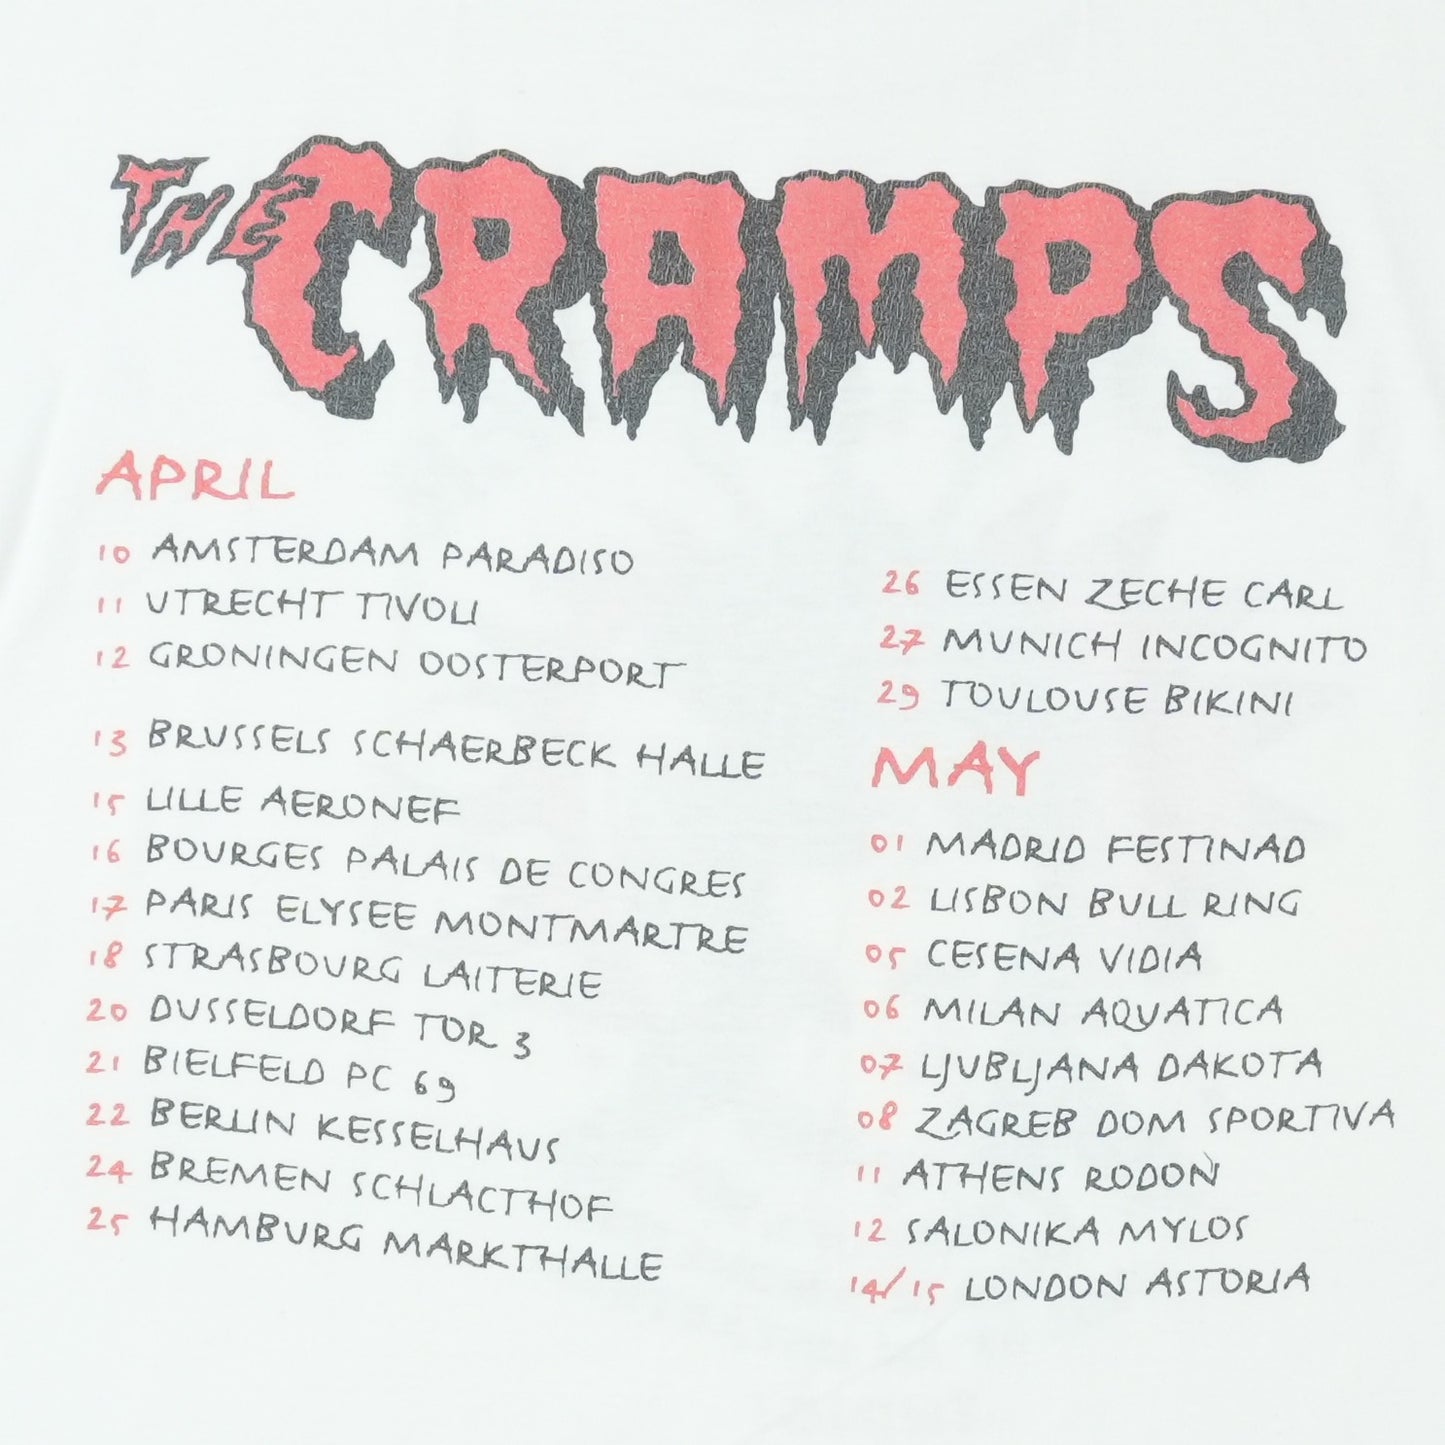 THE CRAMPS
APRIL
10 AMSTERDAM PARADISO
11 UTRECHT TIVOLI
12 GRONINGEN OOSTERPORT
13 BRUSSELS SCHAERBECK HALLE
15 LILLE AERONEF
16 BOURGES PALAIS DE CONGRES
17 PARIS ELYSEE MONTMARTRE
18 STRASBOURG LAITERIE
20 DUSSELDORF TOR 3
21 BIELFELD PC 69
22 BERLIN KESSELHAUS
24 BREMEN SCHLACTHOF
25 HAMBURG MARKTHALLE
26 ESSEN ZECHE CARL
27 MUNICH INCOGNITO
29 TOULOUSE BIKINI
MAY
01 MADRID FESTINAD
02 LISBON BULL RING
05 CESENA VIDIA
06 MILAN AQUATICA
07 LJUBLJANA DAKOTA
08 ZAGREB DOM SPORTIVA
11 ATHENS RODON
12 SALONIKA MYLOS
14/15 LONDON ASTORIA